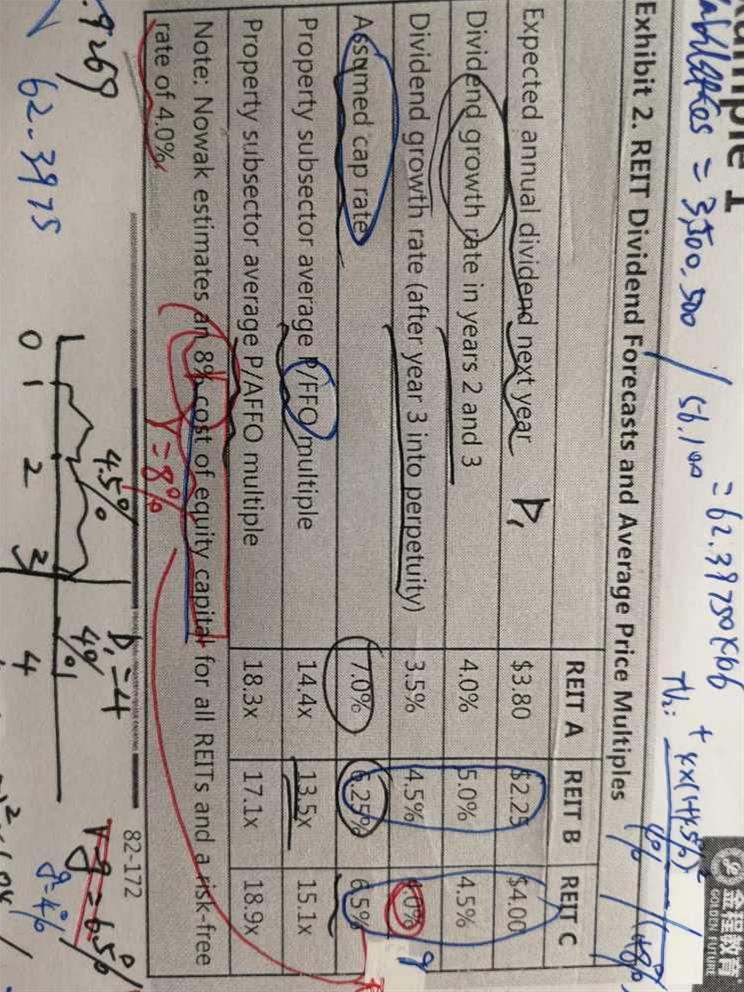 ample 1
= 3,500,500 / 56.100 = 62.39750
Exhibit 2. REIT Dividend Forecasts and Average Price Multiples
REIT A REIT B REIT C
Expected annual dividend next year D₁ $3.80 $2.25 $4.00
Dividend growth rate in years 2 and 3 4.0% 5.0% 4.5%
Dividend growth rate (after year 3 into perpetuity) 3.5% 4.5% 4.0% g
Assumed cap rate 7.0% 6.25% 6.5%
Property subsector average P/FFO multiple 14.4x 13.5x 15.1x
Property subsector average P/AFFO multiple 18.3x 17.1x 18.9x
Note: Nowak estimates an 8% cost of equity capital for all REITs and a risk-free
rate of 4.0%
r=8%
82-172
.9269
62.3975
4.5%
4%
D₁=4
0 1 2 3 4
r-g=6.5%
g=4%
金程教育
GOLDEN FUTURE